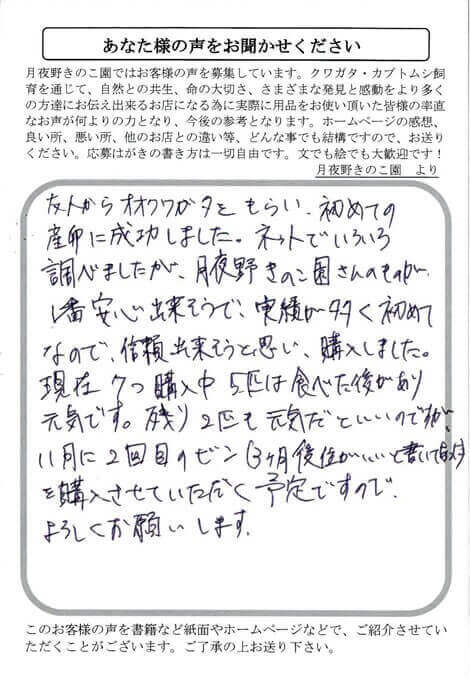 あなた様の声をお聞かせください
月夜野きのこ園ではお客様の声を募集しています。クワガタ・カブトムシ飼
育を通じて、自然との共生、命の大切さ、さまざまな発見と感動をより多く
の方達にお伝え出来るお店になる為に実際に用品をお使い頂いた皆様の率直
なお声が何よりの力となり、今後の参考となります。ホームページの感想、
良い所、悪い所、他のお店との違い等、どんな事でも結構ですので、お送り
ください。応募はがきの書き方は一切自由です。文でも絵でも大歓迎です！
月夜野きのこ園 より
友人からオオクワガタをもらい、初めての
産卵に成功しました。ネットでいろいろ
調べましたが、月夜野きのこ園さんのものが、
1番安心出来そうで、実績が多く初めて
なので、信頼出来そうと思い、購入しました。
現在7つ購入中5匹は食べた後があり
元気です。残り2匹も元気だといいのですが、
11月に2回目のビン(3ヶ月後位がいいと書いてあります
を購入させていただく予定ですので、
よろしくお願いします。
このお客様の声を書籍など紙面やホームページなどで、ご紹介させてい
ただくことがございます。ご了承の上お送り下さい。